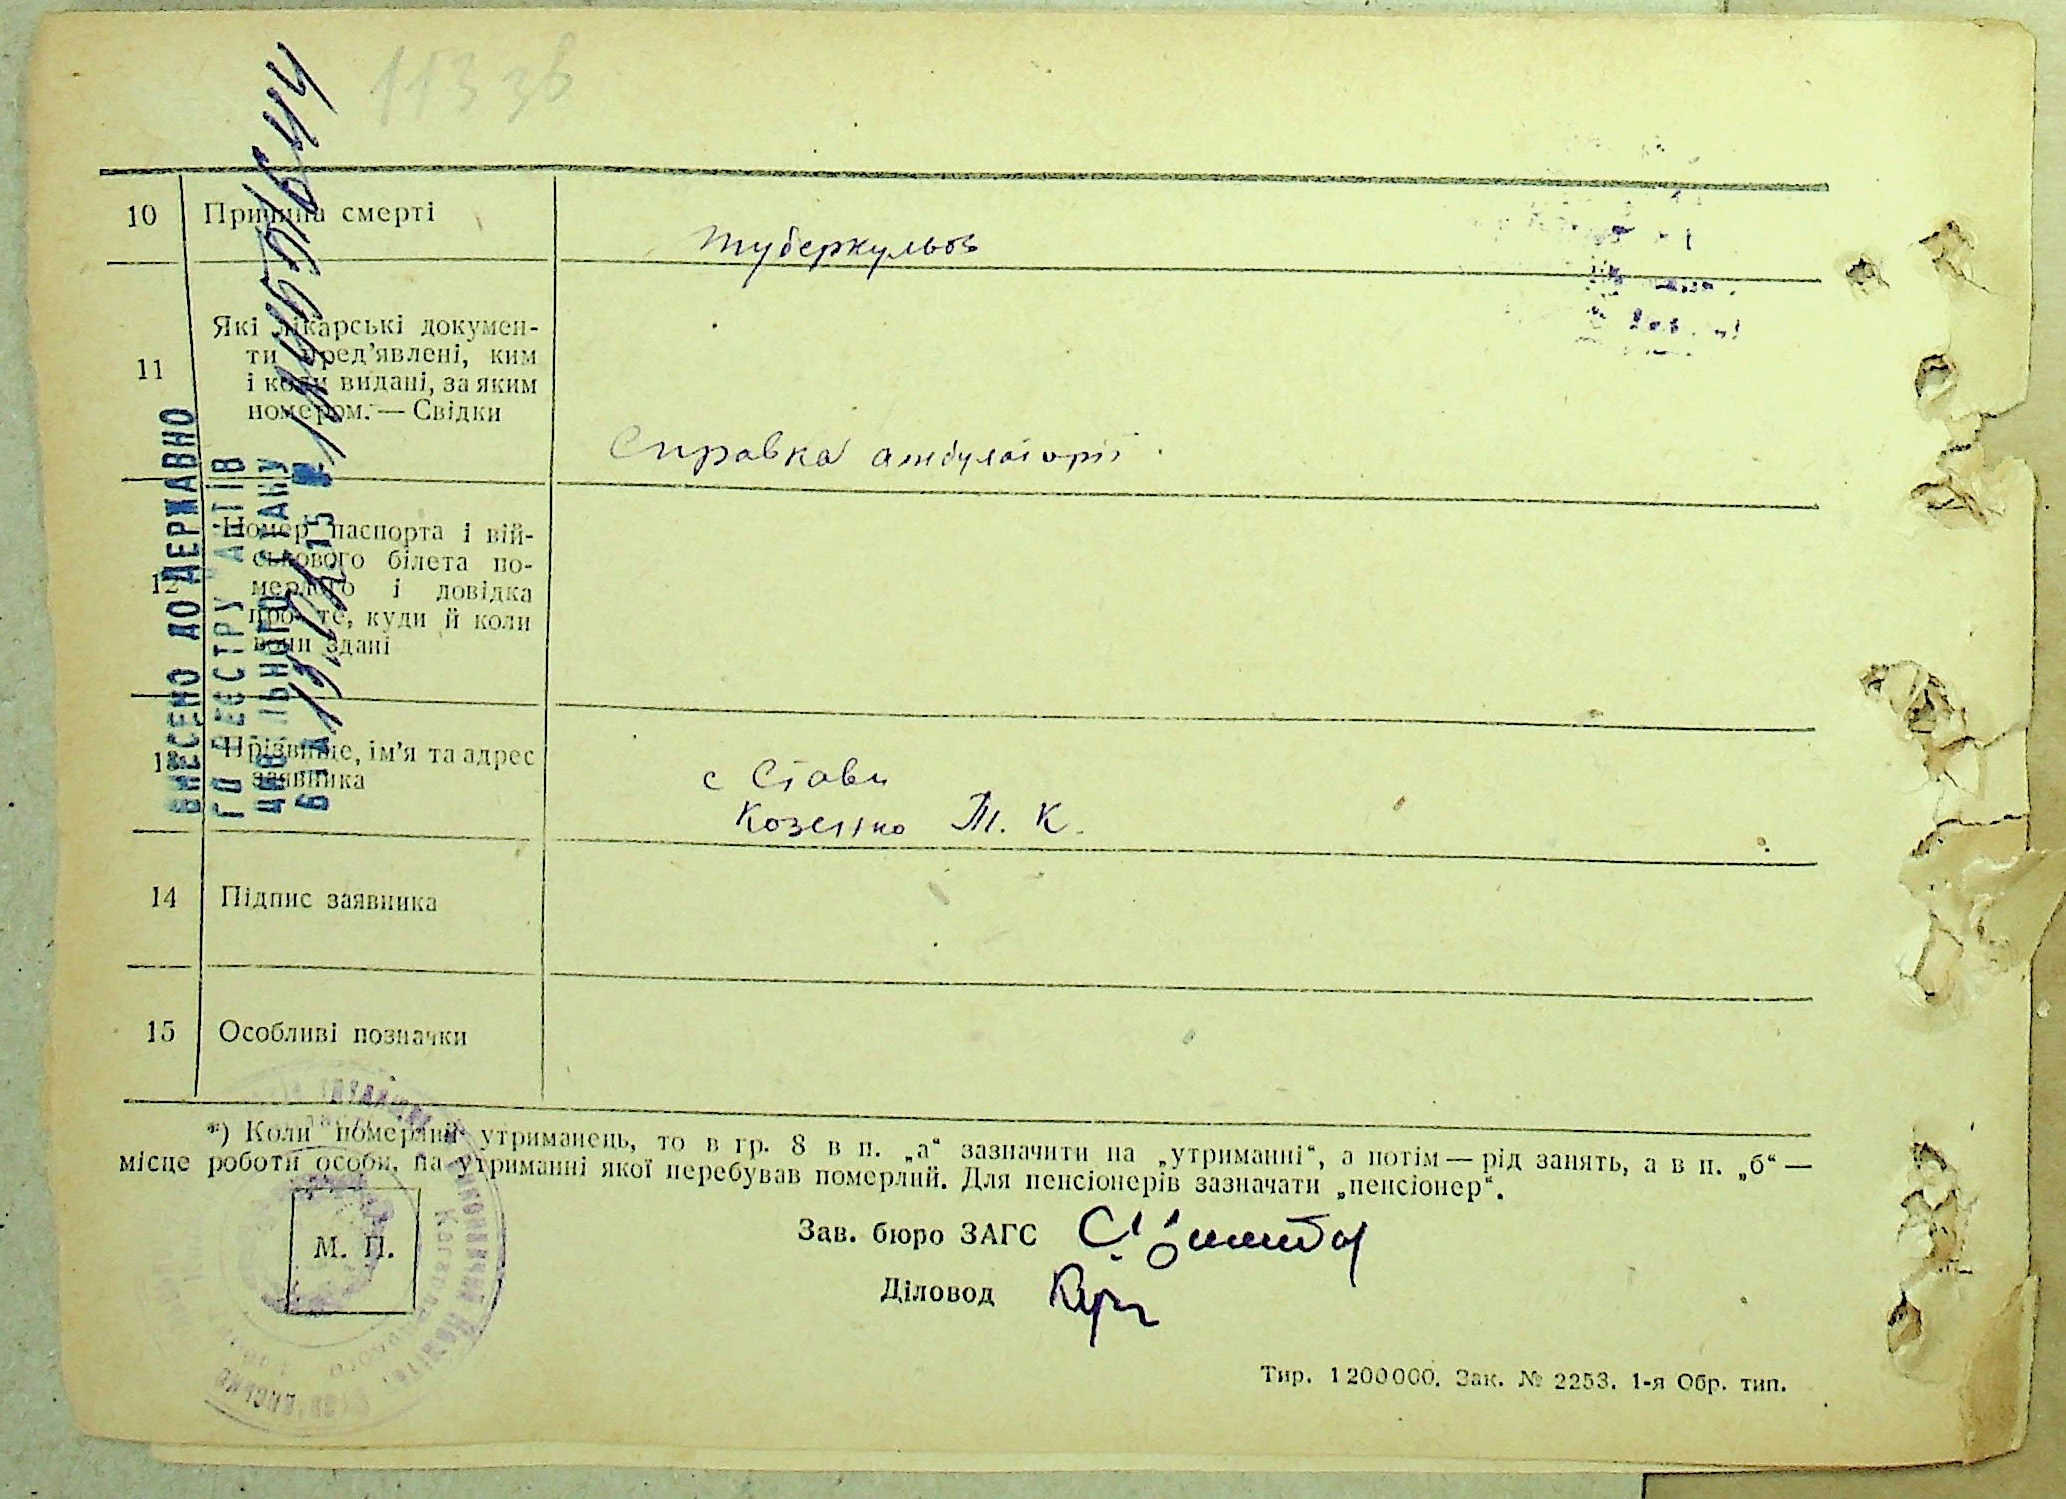 113 зв
10 Причина смерті
туберкульоз
11 Які лікарські докумен-
ти пред’явлені, ким
і коли видані, за яким
номером. — Свідки
Справка амбулаторії
12 Номер паспорта і вій-
ськового білета по-
мерлого і довідка
про те, куди й коли
вони здані
13 Прізвище, ім’я та адрес
заявника
с Стави
Козенко М. К.
14 Підпис заявника
15 Особливі позначки
ВНЕСЕНО ДО ДЕРЖАВНО
ГО РЕЄСТРУ АКТІВ
ЦИВІЛЬНОГО СТАНУ
*) Коли померлий утриманець, то в гр. 8 в п. „а“ зазначити на „утриманні“, а потім — рід занять, а в п. „б“ —
місце роботи особи, на утриманні якої перебував померлий. Для пенсіонерів зазначати „пенсіонер“.
М. П.
Зав. бюро ЗАГС
Діловод
Тир. 1 200 000. Зак. № 2253. 1-я Обр. тип.